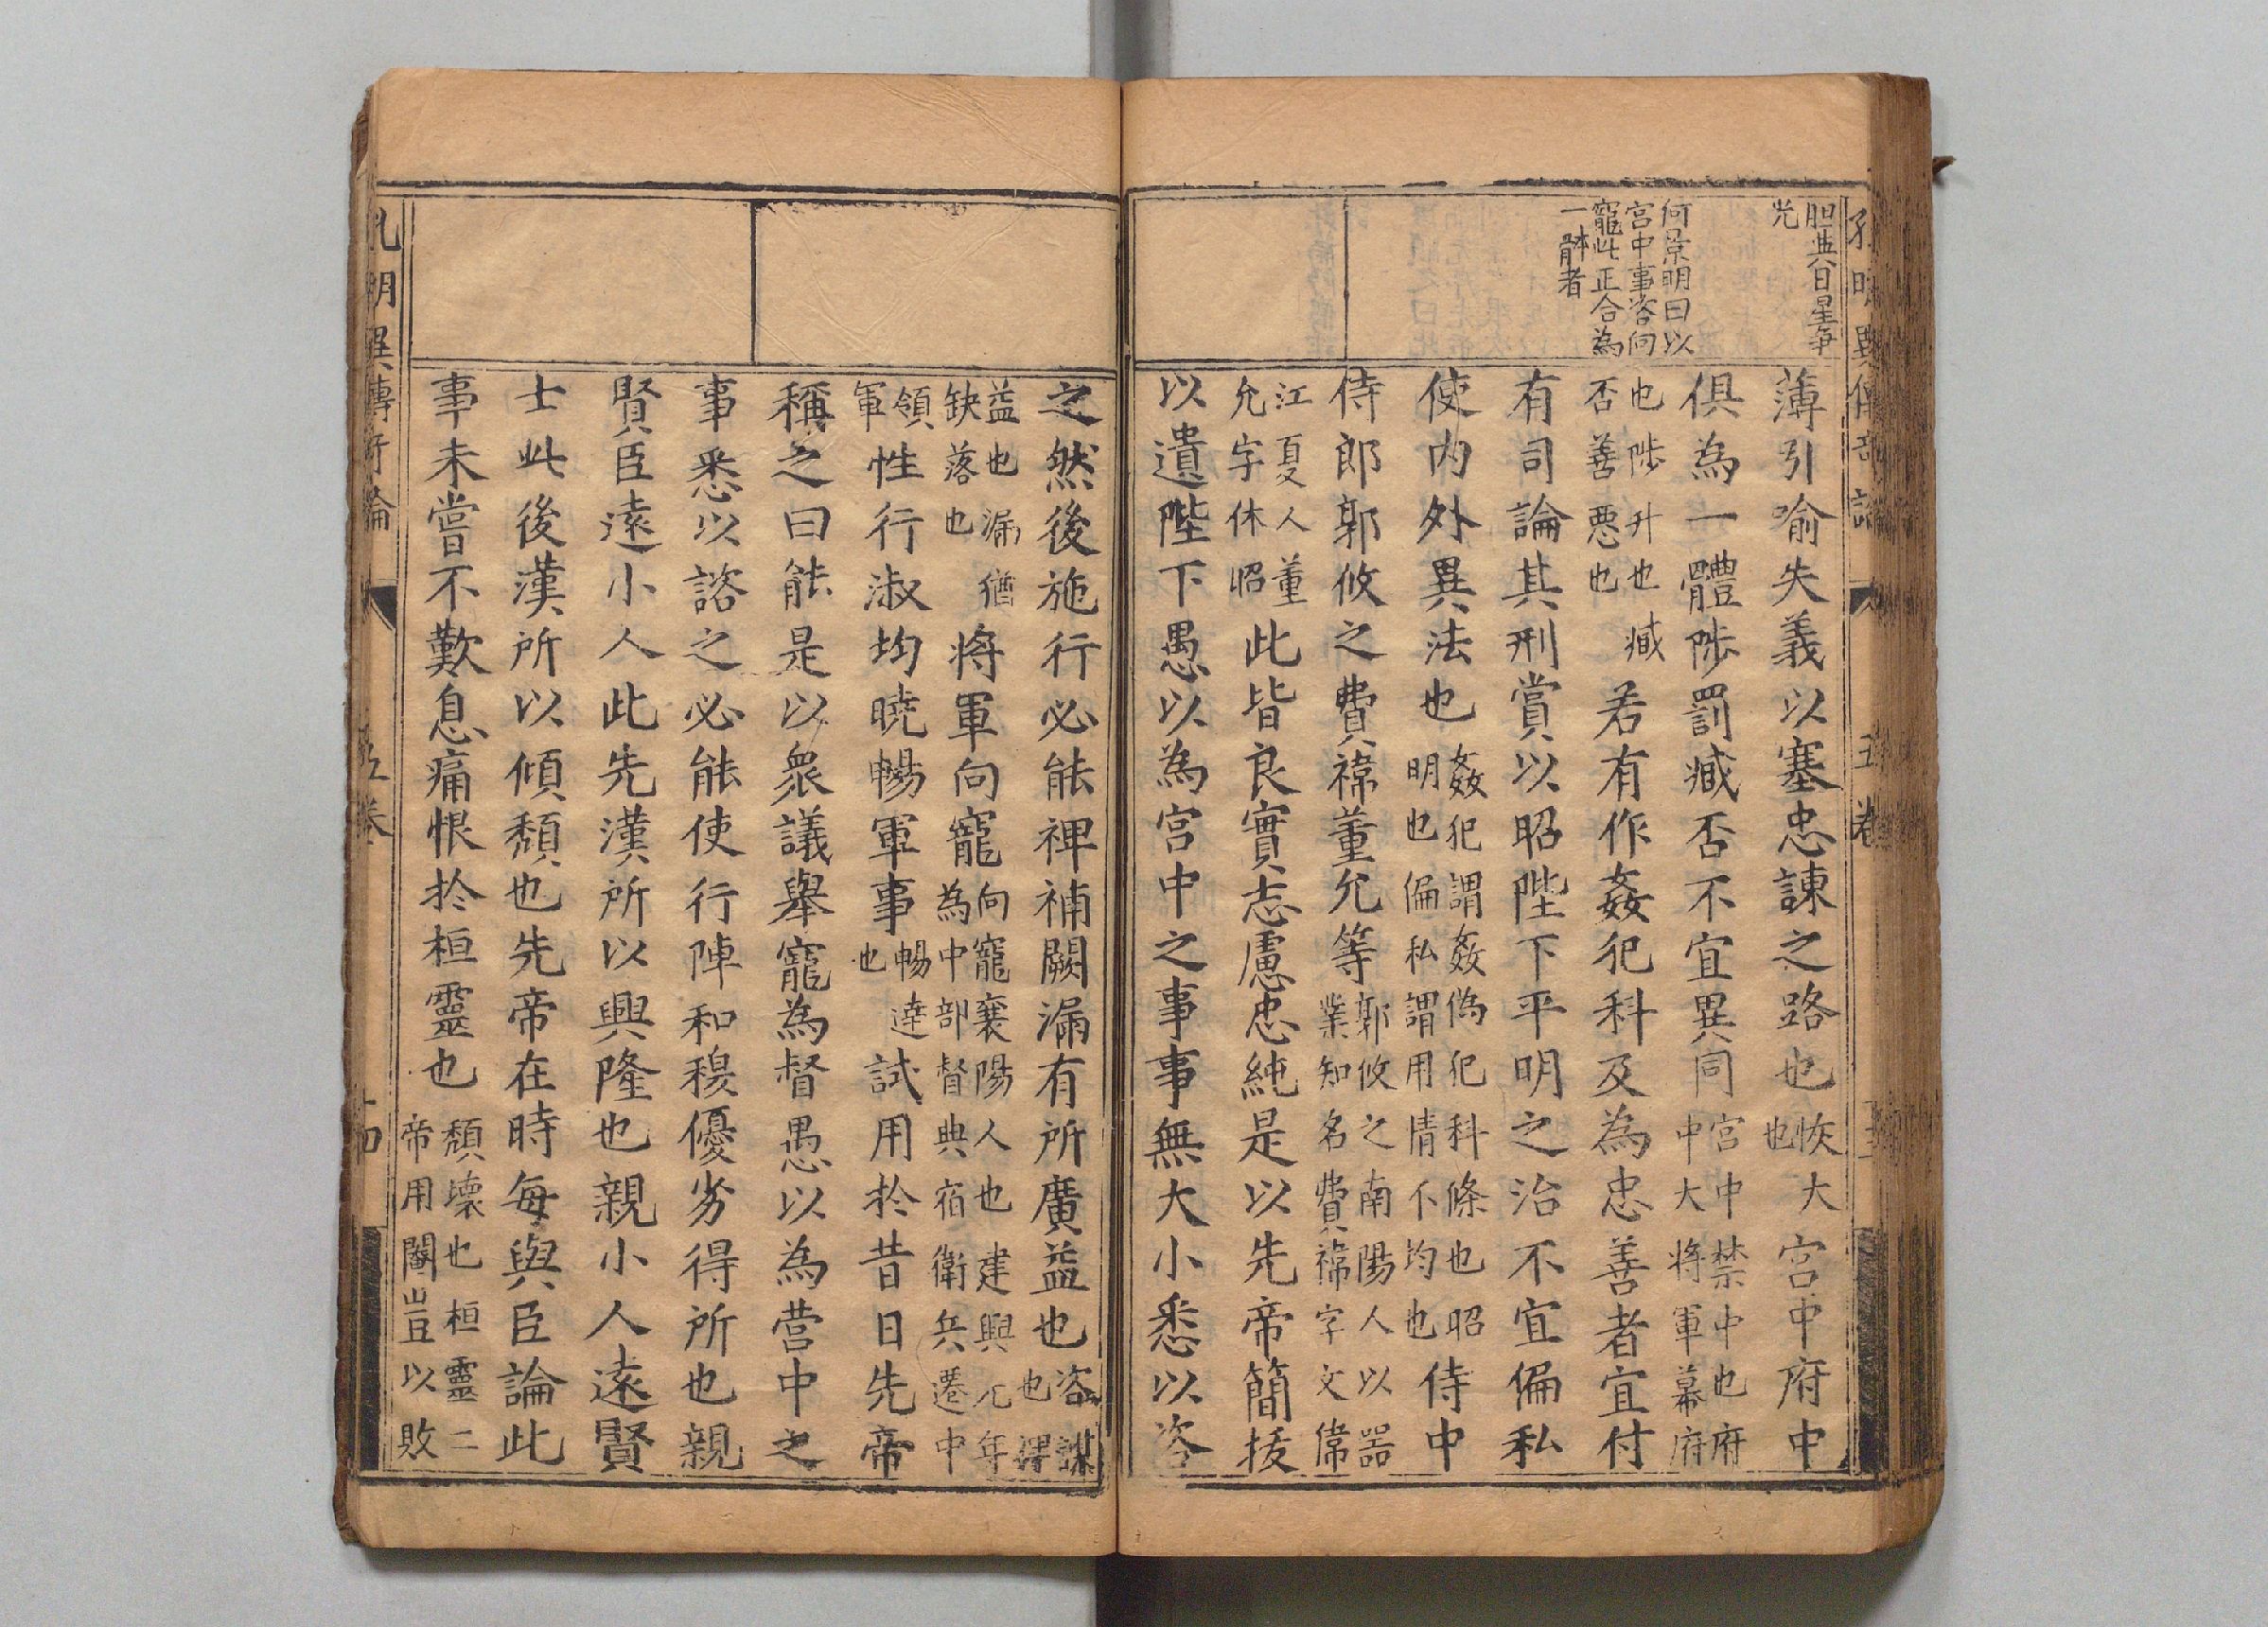 胆與日星争
光
何景明曰以
宫中事咨向
寵此正合為
一體者
薄引喻失義以塞忠諫之路也恢大也宫中府中
俱為一體陟罰臧否不宜異同宫中禁中也府中大將軍幕府
也陟升也臧否善悪也若有作姦犯科及為忠善者宜付
有司論其刑賞以昭陛下平明之治不宜偏私
使内外異法也姦犯謂姦偽犯科條也昭明也偏私謂用情不均也侍中
侍郎郭攸之費禕董允等郭攸之南陽人以器業知名費禕字文偉
江夏人董允字休昭此皆良實志慮忠純是以先帝簡拔
以遺陛下愚以為宫中之事事無大小悉以咨
之然後施行必能裨補闕漏有所廣益也咨謀也裨
益也漏猶缺落也將軍向寵向寵襄陽人也建興元年為中部督典宿衛兵遷中
領軍性行淑均曉暢軍事暢達也試用於昔日先帝
稱之曰能是以衆議舉寵為督愚以為营中之
事悉以諮之必能使行陣和穆優劣得所也親
賢臣遠小人此先漢所以興隆也親小人遠賢
士此後漢所以傾頹也先帝在時每與臣論此
事未嘗不歎息痛恨於桓靈也頹壊也桓靈二帝用閹豎以敗
孔明異傳奇論 五卷 十四